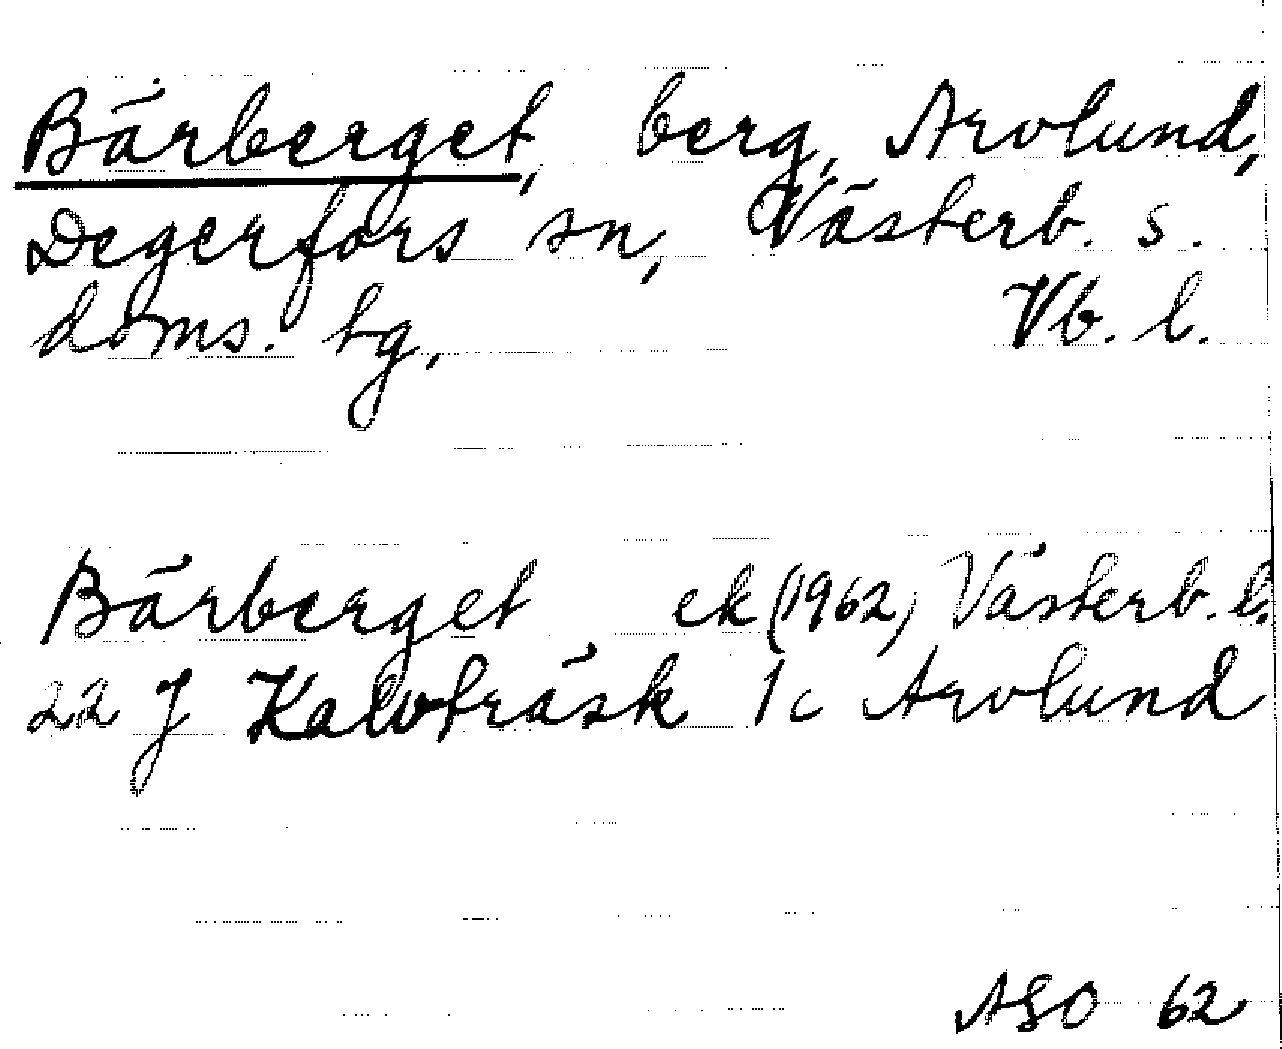 Bärberget, berg, Arvlund,
Degerfors sn, Västerb. s.
doms. tg, Vb. l.
Bärberget ek (1962) Västerb. l.
22 J Kalvträsk 1c Arvlund
ASO 62